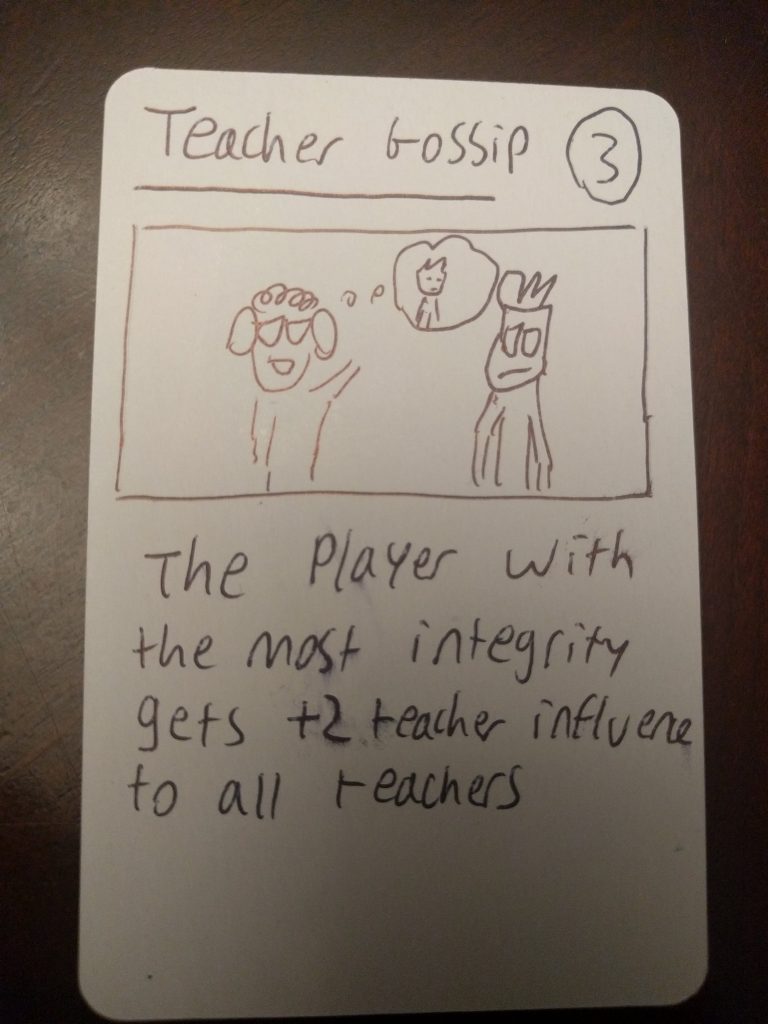 Teacher Gossip 3
The Player with
the most integrity
gets +2 teacher influene
to all teachers